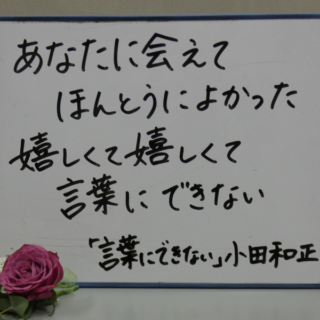 あなたに会えて
ほんとうによかった
嬉しくて嬉しくて
言葉にできない
「言葉にできない」小田和正